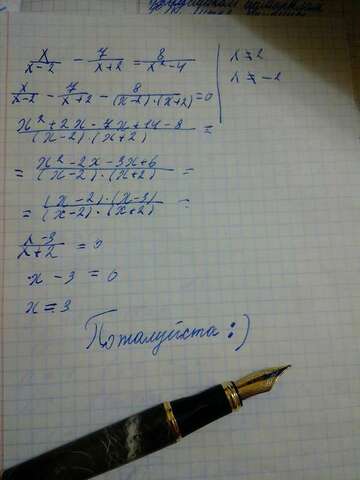 x/(x-2) - 7/(x+2) = 8/(x²-4)
x ≠ 2
x ≠ -2
x/(x-2) - 7/(x+2) - 8/((x-2)·(x+2)) = 0
(x²+2x-7x+14-8)/((x-2)·(x+2)) =
= (x²-2x-3x+6)/((x-2)·(x+2)) =
= ((x-2)·(x-3))/((x-2)·(x+2)) =
(x-3)/(x+2) = 0
x - 3 = 0
x = 3
Пожалуйста :)